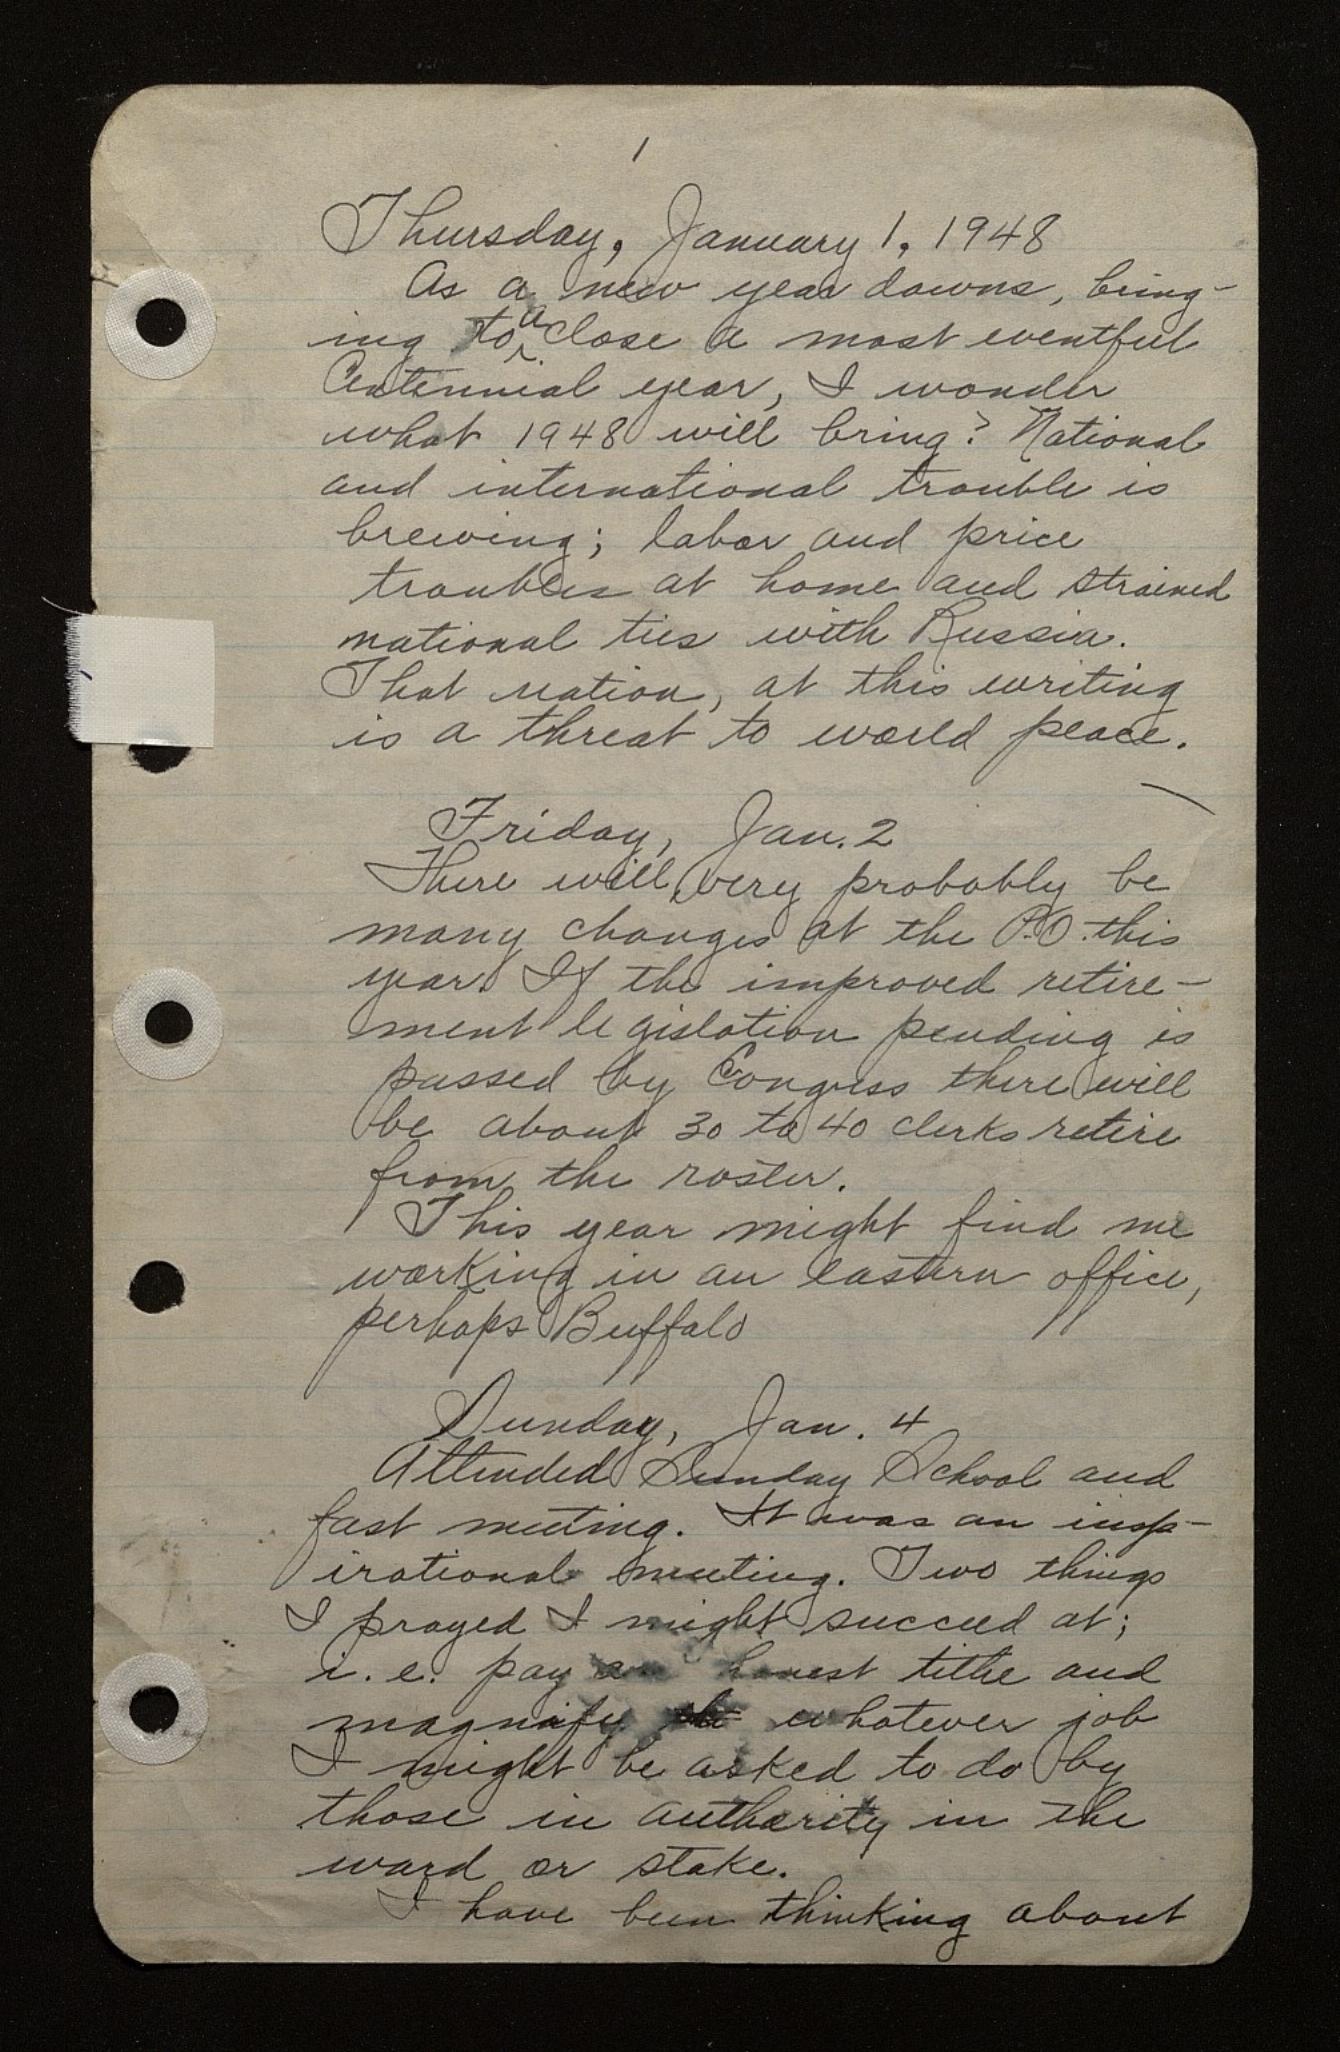 1
Thursday, January 1, 1948
As a new year dawns, bring-
ing to a close a most eventful
Centennial year, I wonder
what 1948 will bring? National
and international trouble is
brewing; labor and price
troubles at home and strained
national ties with Russia.
That nation, at this writing
is a threat to world peace.
Friday, Jan. 2
There will very probably be
many changes at the P.O. this
year. If the improved retire-
ment legislation pending is
passed by Congress there will
be about 30 to 40 clerks retire
from the roster.
This year might find me
working in an eastern office,
perhaps Buffalo
Sunday, Jan. 4
Attended Sunday School and
fast meeting. It was an insp-
irational meeting. Two things
I prayed I might succeed at;
i.e. pay an honest tithe and
magnify whatever job
I might be asked to do by
those in authority in the
ward or stake.
I have been thinking about